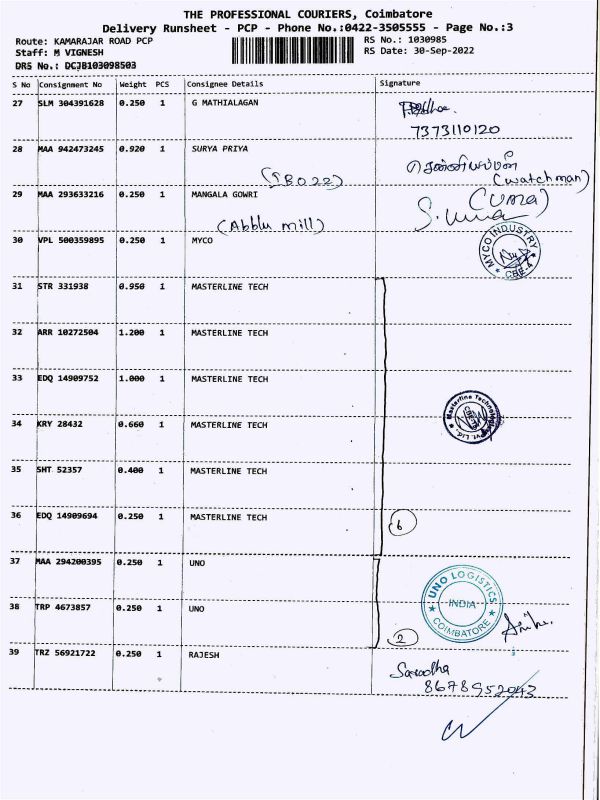 THE PROFESSIONAL COURIERS, Coimbatore
Delivery Runsheet - PCP - Phone No.:0422-3505555 - Page No.:3
Route: KAMARAJAR ROAD PCP RS No.: 1030985
Staff: M VIGNESH RS Date: 30-Sep-2022
DRS No.: DCJB103098503
S No Consignment No Weight PCS Consignee Details Signature
27 SLM 304391628 0.250 1 G MATHIALAGAN
7373110120
28 MAA 942473245 0.920 1 SURYA PRIYA
(watchman)
29 MAA 293633216 0.250 1 MANGALA GOWRI (uma)
(Abblu mill) S. uma
30 VPL 500359895 0.250 1 MYCO MYCO INDUSTRY CBE-4
31 STR 331938 0.950 1 MASTERLINE TECH
32 ARR 10272504 1.200 1 MASTERLINE TECH
33 EDQ 14909752 1.000 1 MASTERLINE TECH
34 KRY 28432 0.660 1 MASTERLINE TECH
35 SHT 52357 0.400 1 MASTERLINE TECH
36 EDQ 14909694 0.250 1 MASTERLINE TECH 6
37 MAA 294200395 0.250 1 UNO UNO LOGISTICS
INDIA
38 TRP 4673857 0.250 1 UNO COIMBATORE
2
39 TRZ 56921722 0.250 1 RAJESH
8678952043